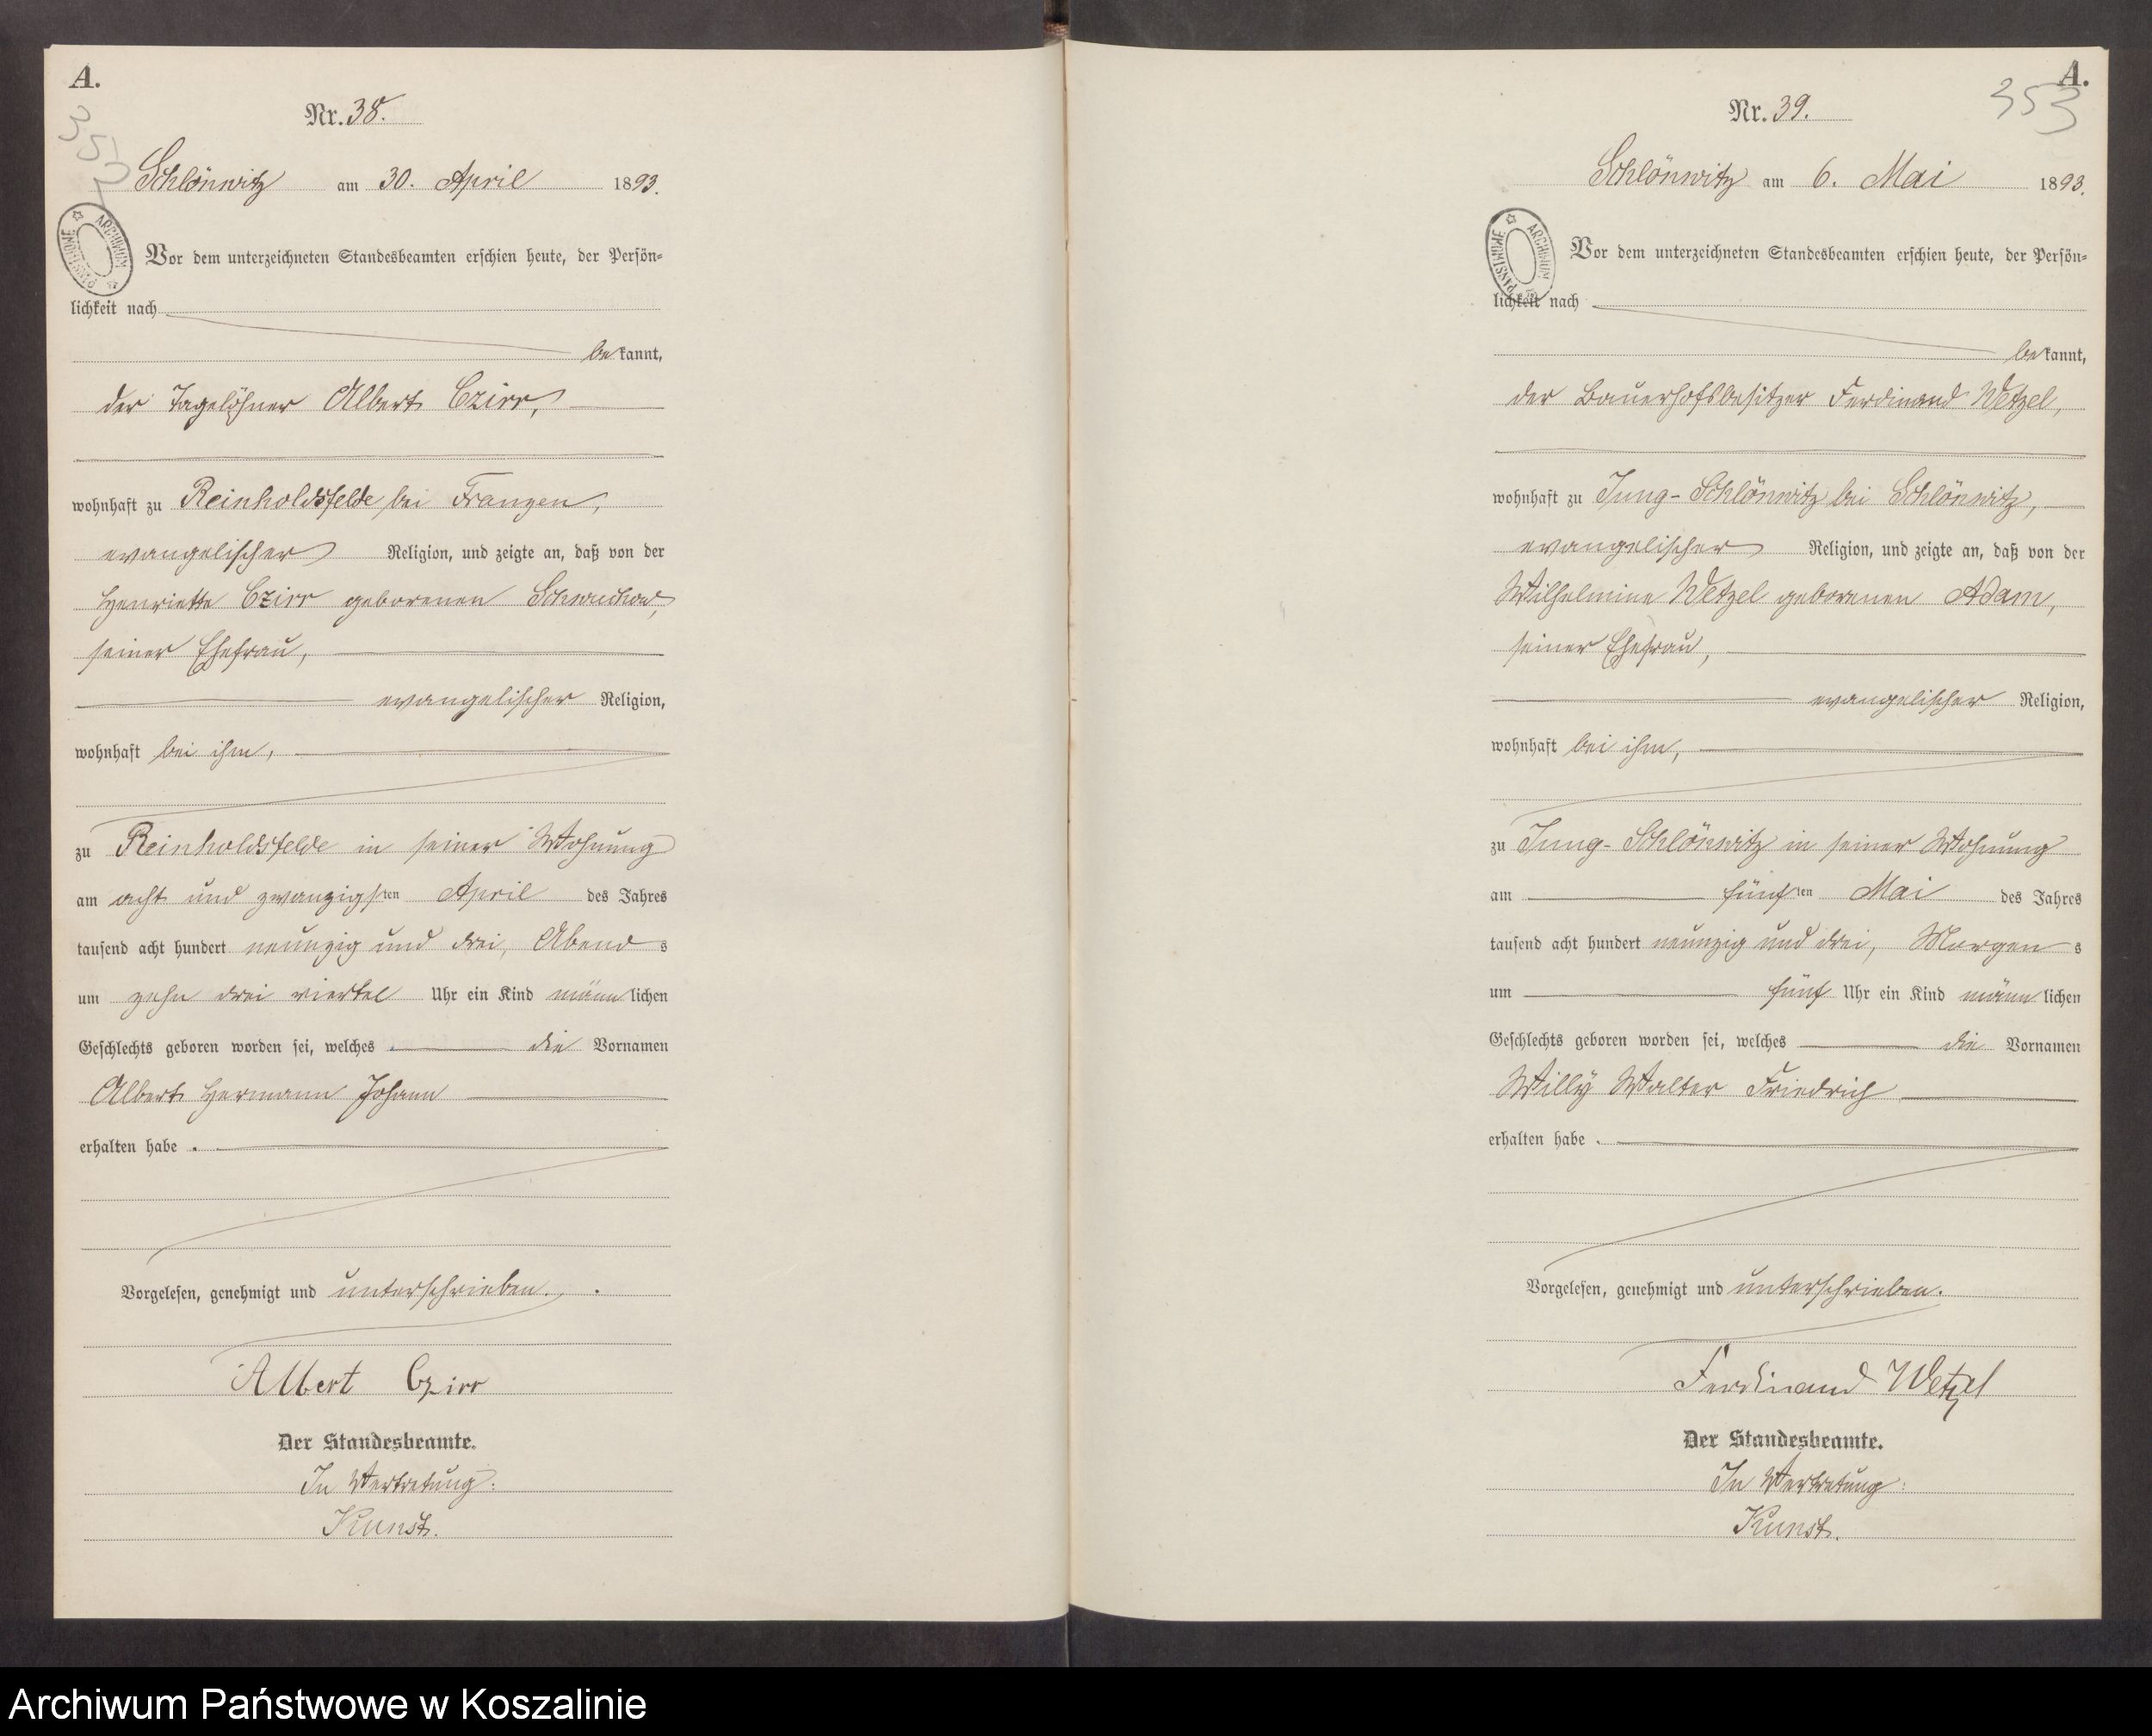 A.
352
Nr. 38.
Schlönwitz am 30. April 1893.
ARCHIWUM PAŃSTWOWE
Vor dem unterzeichneten Standesbeamten erschien heute, der Persön-
lichkeit nach
bekannt,
der Tagelöhner Albert Czirr,
wohnhaft zu Reinholdsfelde bei Franzen,
evangelischer Religion, und zeigte an, daß von der
Henriette Czirr geborenen
seiner Ehefrau,
evangelischer Religion,
wohnhaft bei ihm,
zu Reinholdsfelde in seiner Wohnung
am acht und zwanzigsten April des Jahres
tausend acht hundert neunzig und drei, Abends
um zehn drei viertel Uhr ein Kind männlichen
Geschlechts geboren worden sei, welches die Vornamen
Albert Hermann Johann
erhalten habe.
Vorgelesen, genehmigt und unterschrieben.
Albert Czirr
Der Standesbeamte.
In Vertretung:
Kunst.
A.
353
Nr. 39.
Schlönwitz am 6. Mai 1893.
ARCHIWUM PAŃSTWOWE
Vor dem unterzeichneten Standesbeamten erschien heute, der Persön-
lichkeit nach
bekannt,
der Bauerhofsbesitzer Ferdinand Wetzel,
wohnhaft zu Jung-Schlönwitz bei Schlönwitz,
evangelischer Religion, und zeigte an, daß von der
Wilhelmine Wetzel geborenen Adam,
seiner Ehefrau,
evangelischer Religion,
wohnhaft bei ihm,
zu Jung-Schlönwitz in seiner Wohnung
am fünften Mai des Jahres
tausend acht hundert neunzig und drei, Morgens
um fünf Uhr ein Kind männlichen
Geschlechts geboren worden sei, welches die Vornamen
Willy Walter Friedrich
erhalten habe.
Vorgelesen, genehmigt und unterschrieben.
Ferdinand Wetzel
Der Standesbeamte.
In Vertretung:
Kunst.
Archiwum Państwowe w Koszalinie